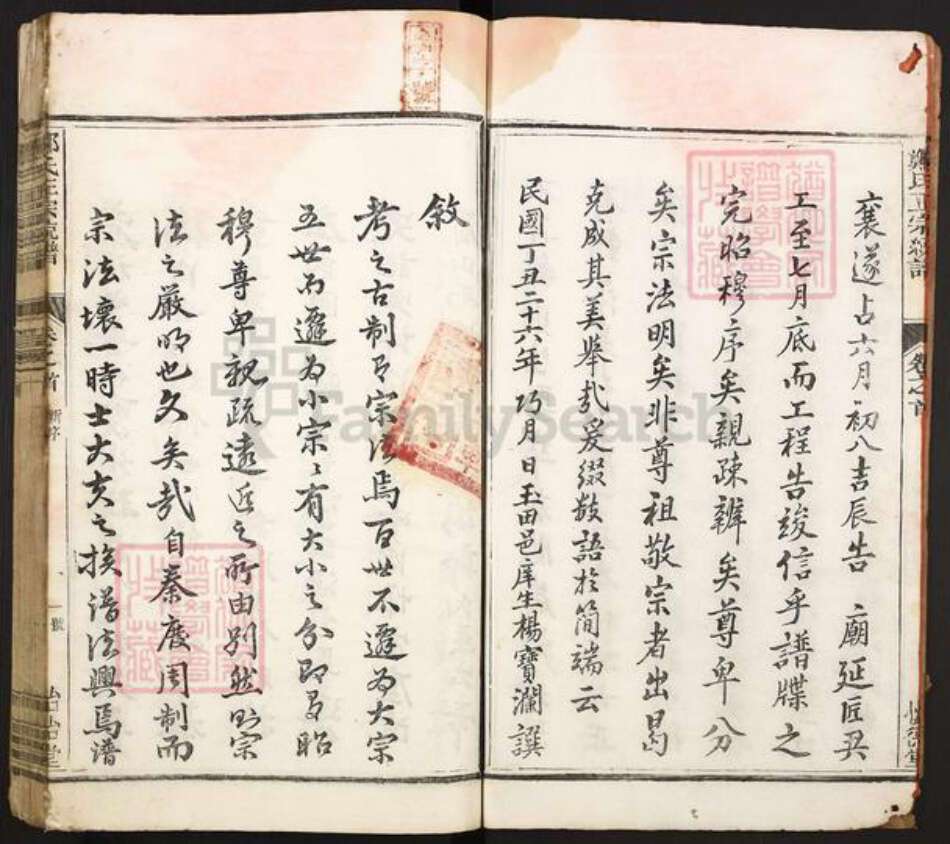 襄遂占六月初八吉辰告 廟延匠興
工至七月底而工程告竣信乎譜牒之
完昭穆序矣親疎辨矣尊卑分
矣宗法明矣非尊祖敬宗者出曷
克成其美舉哉爰綴數語於簡端云
民國丁丑二十六年巧月 日玉田邑庠生楊寶瀾譔
敘
考之古制有宗法焉百世不遷為大宗
五世而遷為小宗〻有大小之分即有昭
穆尊卑親疏遠近之所由別然則宗
法之嚴明也久矣哉自秦廢周制而
宗法壞一時士大夫之族譜法興焉譜
鄭氏正宗總譜
卷之首
FamilySearch